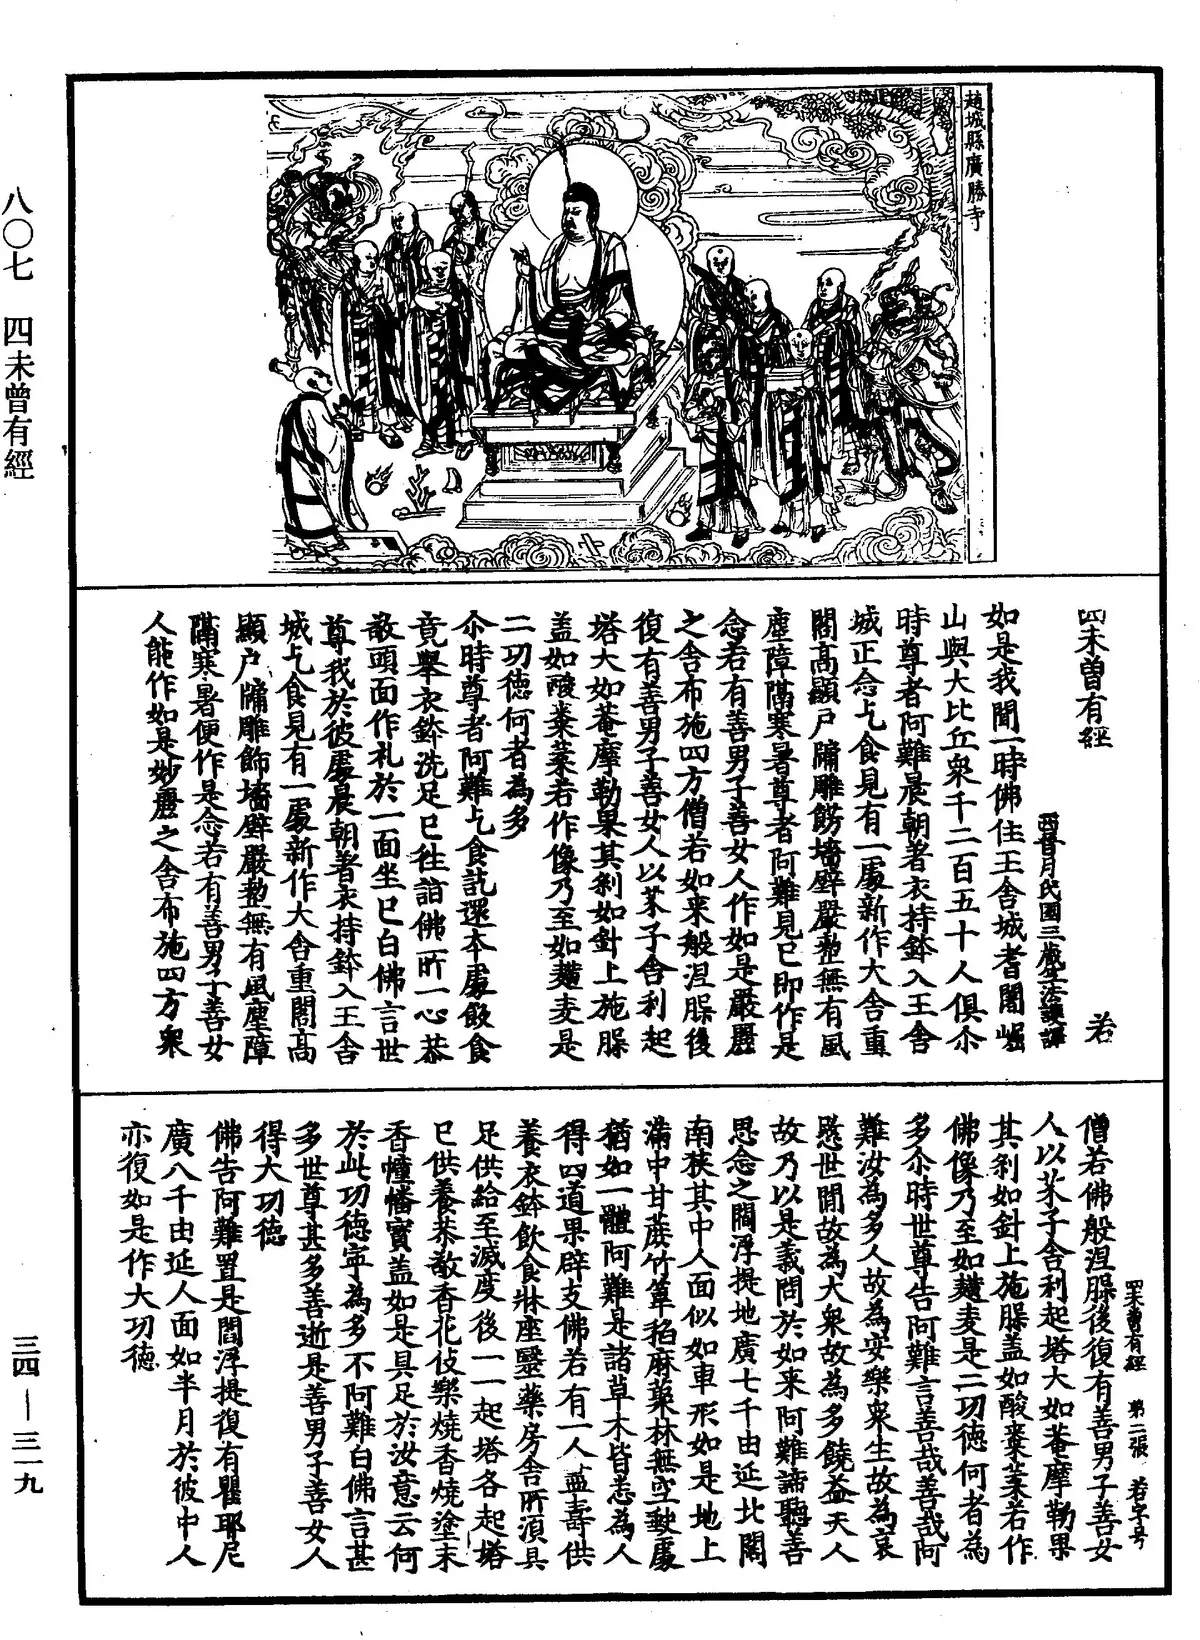 趙城縣廣勝寺
八〇七 四未曾有經
四未曾有經 若
西晉月氏國三藏竺法護譯
如是我聞一時佛住王舍城耆闍崛
山與大比丘衆千二百五十人俱尒
時尊者阿難晨朝著衣持鉢入王舍
城正念乞食見有一處新作大舍重
閣高顯戶牖雕飾墻壁嚴整無有風
塵障隔寒暑尊者阿難見已即作是
念若有善男子善女人作如是嚴麗
之舍布施四方僧若如来般涅槃後
復有善男子善女人以芥子舍利起
塔大如菴摩勒果其刹如針上施槃
盖如酸棗葉若作像乃至如䴬麦是
二功德何者為多
尒時尊者阿難乞食訖還本處飯食
竟舉衣鉢洗足已往詣佛所一心恭
敬頭面作礼於一面坐已白佛言世
尊我於彼處晨朝著衣持鉢入王舍
城乞食見有一處新作大舍重閣高
顯戶牖雕飾墻壁嚴整無有風塵障
隔寒暑便作是念若有善男子善女
人能作如是妙麗之舍布施四方衆
四未曾有經 第二張 若字号
僧若佛般涅槃後復有善男子善女
人以芥子舍利起塔大如菴摩勒果
其刹如針上施槃盖如酸棗葉若作
佛像乃至如䴬麦是二功德何者為
多尒時世尊告阿難言善哉善哉阿
難汝為多人故為安樂衆生故為哀
愍世間故為大衆故為多饒益天人
故乃以是義問於如来阿難諦聽善
思念之閻浮提地廣七千由延北闊
南狹其中人面似如車形如是地上
滿中甘蔗竹葦稻麻藂林無空缺處
猶如一體阿難是諸草木皆悉為人
得四道果辟支佛若有一人盡壽供
養衣鉢飲食牀座醫藥房舍所湏具
足供給至滅度後一一起塔各起塔
已供養恭敬香花伎樂燒香燒塗末
香幢幡寳盖如是具足於汝意云何
於此功德寧為多不阿難白佛言甚
多世尊甚多善逝是善男子善女人
得大功德
佛告阿難置是閻浮提復有瞿耶尼
廣八千由延人面如半月於彼中人
亦復如是作大功德
三四—三一九